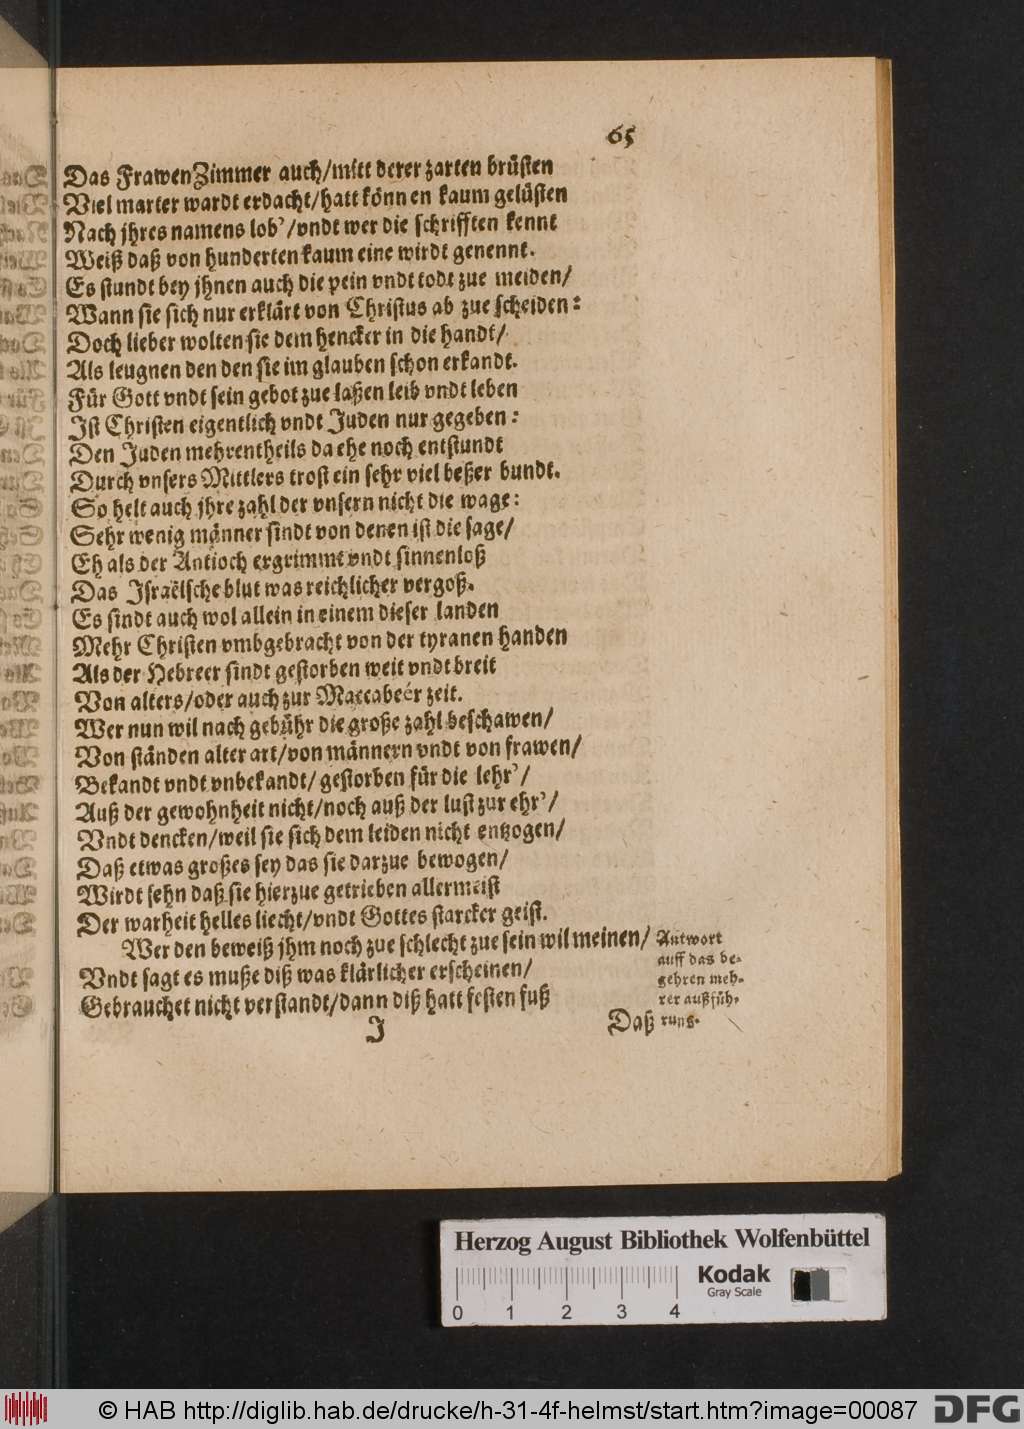 65
Das FrawenZimmer auch/mitt derer zarten brüsten
Viel marter wardt erdacht/hatt können kaum gelüsten
Nach jhres namens lob'/vndt wer die schrifften kennt
Weiß daß von hunderten kaum eine wirdt genennt.
Es stundt bey jhnen auch die pein vndt todt zue meiden/
Wann sie sich nur erklärt von Christus ab zue scheiden:
Doch lieber wolten sie dem hencker in die handt/
Als leugnen den den sie im glauben schon erkandt.
Für Gott vndt sein gebot zue laßen leib vndt leben
Ist Christen eigentlich vndt Juden nur gegeben:
Den Juden mehrentheils da ehe noch entstundt
Durch vnsers Mittlers trost ein sehr viel beßer bundt.
So helt auch jhre zahl der vnsern nicht die wage:
Sehr wenig männer sindt von denen ist die sage/
Eh als der Antioch ergrimmt vndt sinnenloß
Das Israëlsche blut was reichlicher vergoß.
Es sindt auch wol allein in einem dieser landen
Mehr Christen vmbgebracht von der tyranen handen
Als der Hebreer sindt gestorben weit vndt breit
Von alters/oder auch zur Maccabeér zeit.
Wer nun wil nach gebühr die große zahl beschawen/
Von ständen alter art/von männern vndt von frawen/
Bekandt vndt vnbekandt/gestorben für die lehr'/
Auß der gewohnheit nicht/noch auß der lust zur ehr'/
Vndt dencken/weil sie sich dem leiden nicht entzogen/
Daß etwas großes sey das sie darzue bewogen/
Wirdt sehn daß sie hierzue getrieben allermeist
Der warheit helles liecht/vndt Gottes starcker geist.
Wer den beweiß jhm noch zue schlecht zue sein wil meinen/
Vndt sagt es muße diß was klärlicher erscheinen/
Gebrauchet nicht verstandt/dann diß hatt festen fuß
Antwort
auff das be-
gehren meh-
rer außfüh-
rung.
J
Daß
Herzog August Bibliothek Wolfenbüttel
Kodak
Gray Scale
0 1 2 3 4
© HAB http://diglib.hab.de/drucke/h-31-4f-helmst/start.htm?image=00087
DFG